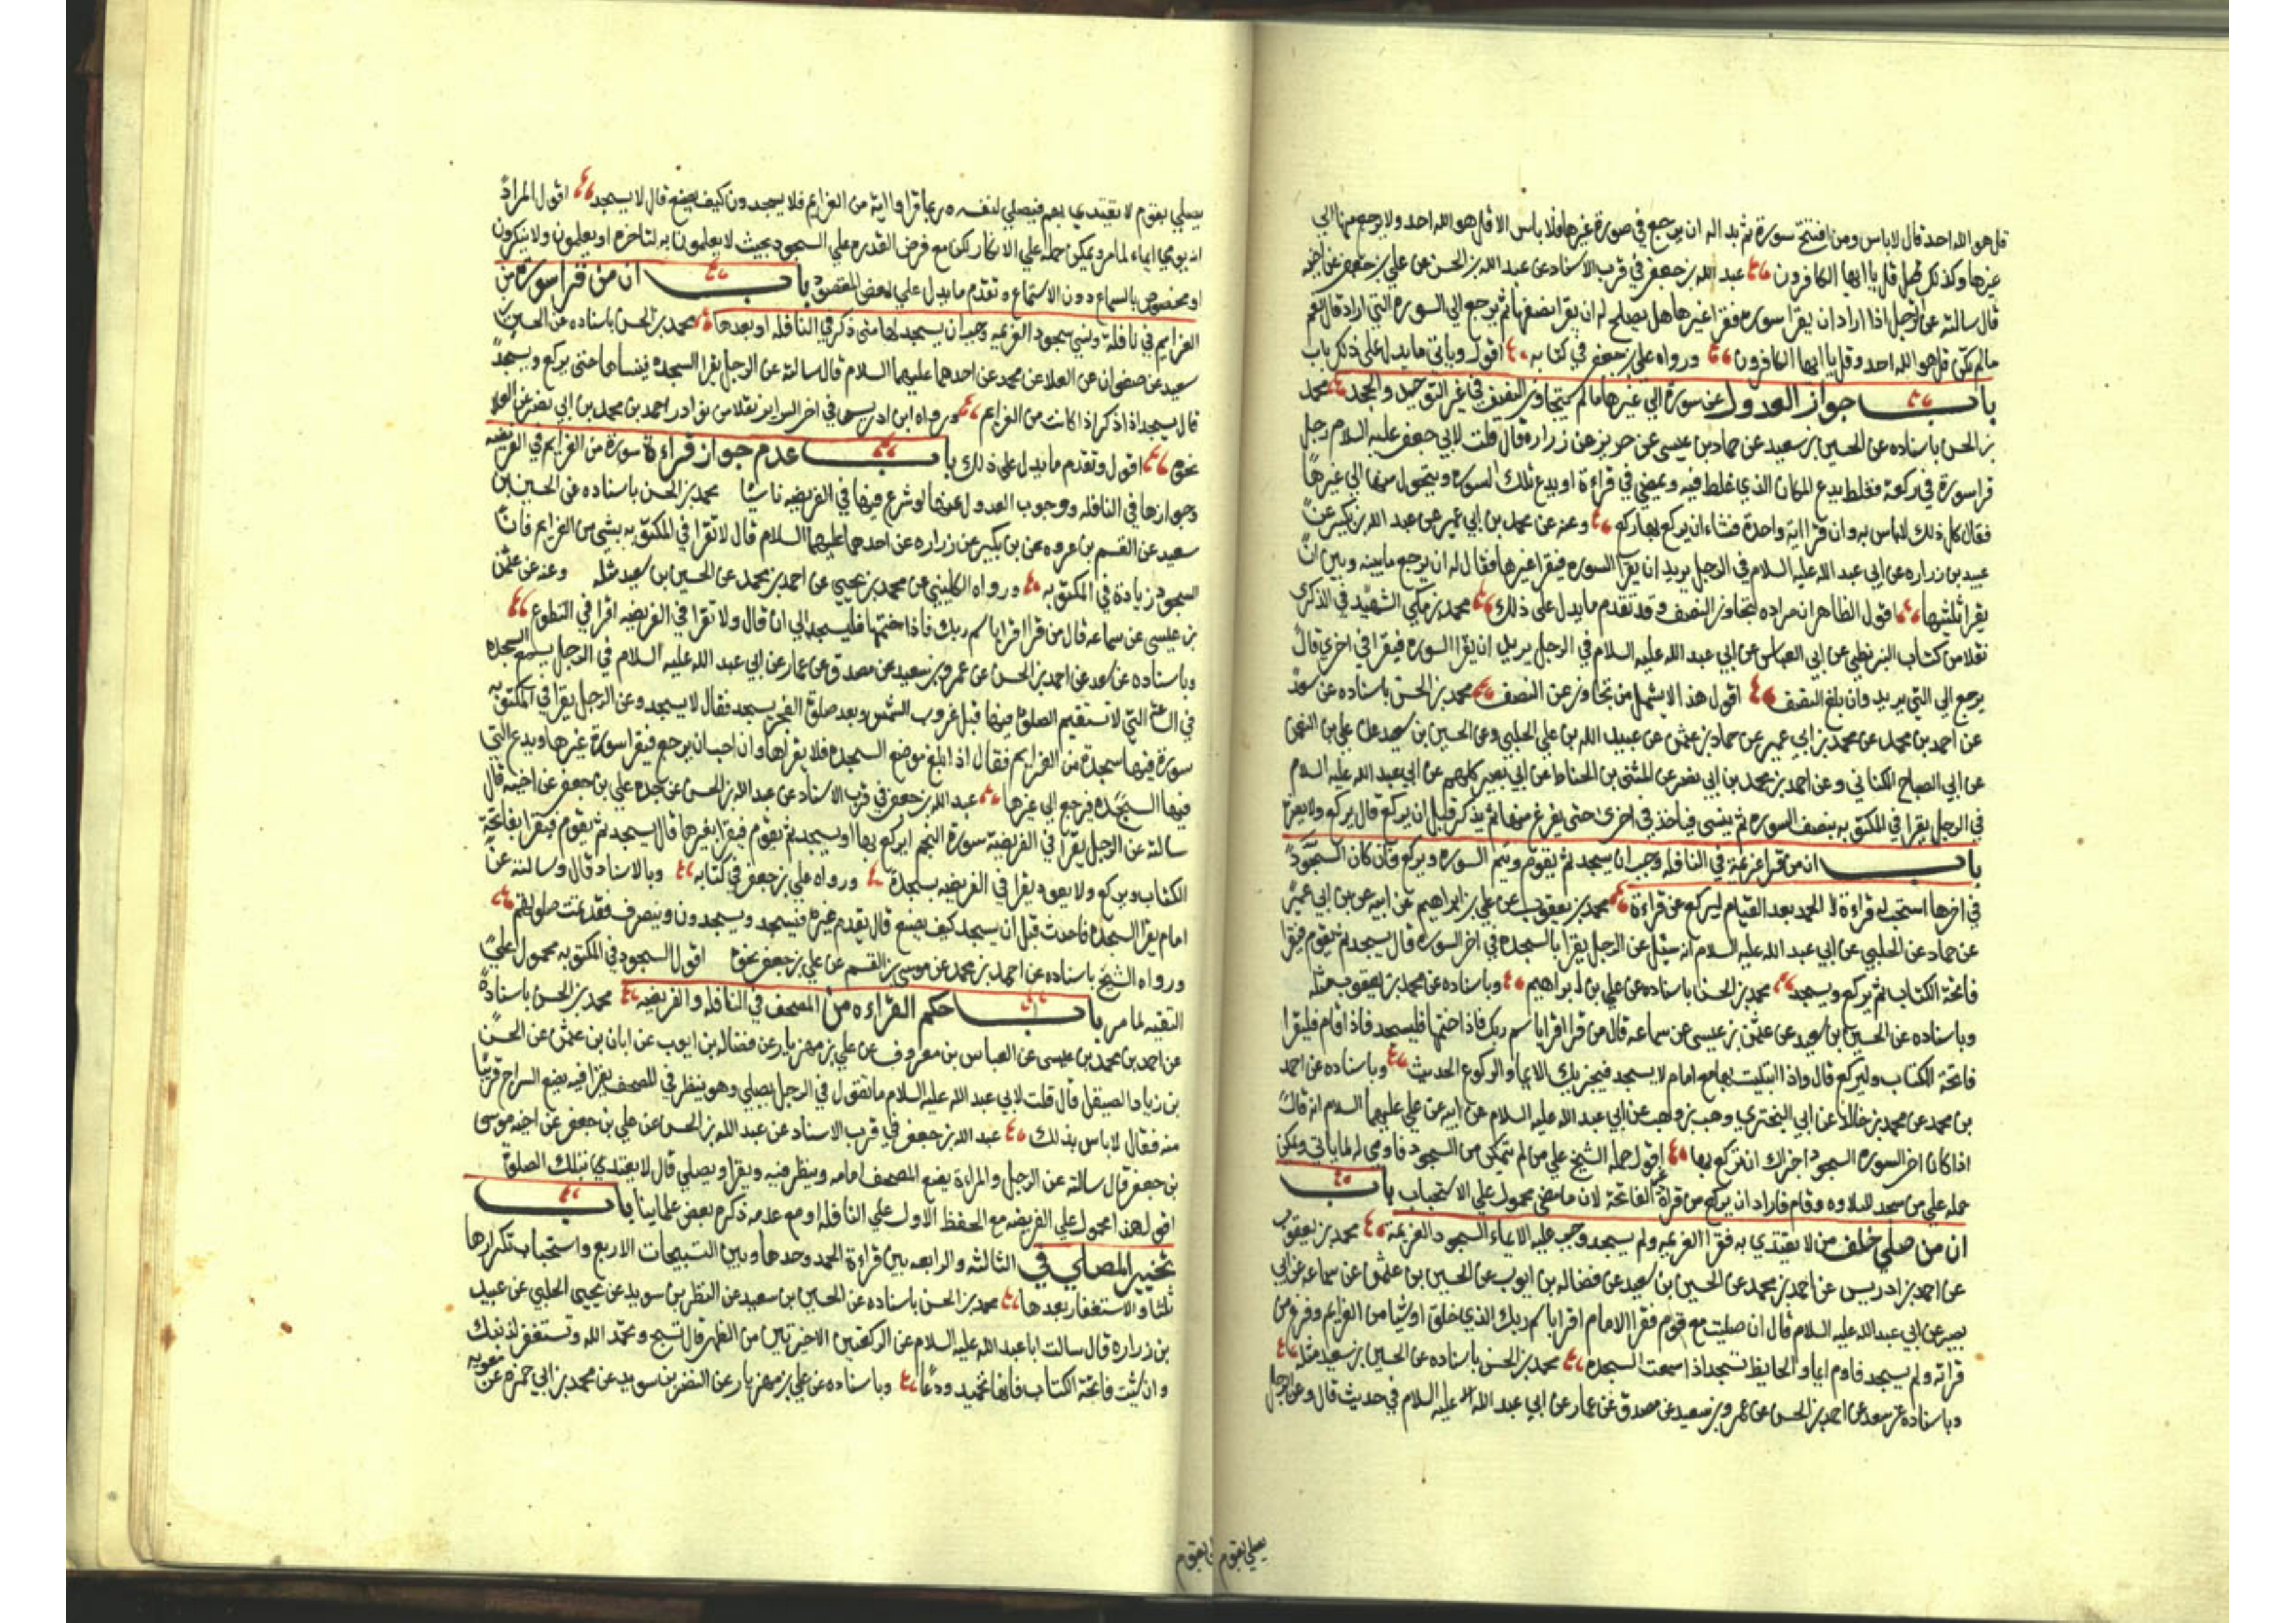 قل هو الله احد قال لا باس ومن افتتح سورة ثم بدا له ان يرجع في صورة غيرها فلا باس الا قل هو الله احد ولا يرجع منها الي
غيرها وكذلك قل يا ايها الكافرون عبد الله بن جعفر في قرب الاسناد عن عبد الله بن الحسن عن علي بن جعفر عن اخيه
قال سالته عن الرجل اذا اراد ان يقرا سوره فقرا غيرها هل يصلح له ان يقرا نصفها ثم يرجع الي السوره التي اراد قال نعم
مالم تكن قل هو الله احد وقل يا ايها الكافرون ورواه علي بن جعفر في كتابه اقول وياتي ما يدل على ذلك باب
باب جواز العدول عن سورة الي غيرها مالم يتجاوز النصف في غير التوحيد والجحد محمد
بن الحسن باسناده عن الحسين بن سعيد عن حماد بن عيسى عن حريز عن زراره قال قلت لابي جعفر عليه السلام رجل
قرا سورة في ركعة فغلط يدع المكان الذي غلط فيه ويمضي في قراءة او يدع تلك السوره ويتحول منها الي غيرها
فقال كل ذلك لا باس به وان قرا اية واحدة فشاء ان يركع بها ركع وعنه عن محمد بن ابي عمير عن عبد الله بن بكير عن
عبيد بن زراره عن ابي عبد الله عليه السلام في الرجل يريد ان يقرا السوره فيقرا غيرها فقال له ان يرجع ما بينه وبين ان
يقرا ثلثيها اقول الظاهر ان مراده لتجاوز النصف وقد تقدم ما يدل على ذلك محمد بن مكي الشهيد في الذكرى
نقلا من كتاب البزنطي عن ابي العباس عن ابي عبد الله عليه السلام في الرجل يريد ان يقرا السوره فيقرا في اخري قال
يرجع الي التي يريد وان بلغ النصف اقول هذا لا يشمل من تجاوز عن النصف محمد بن الحسن باسناده عن سعد
عن احمد بن محمد عن محمد بن ابي عمير عن حماد بن عثمن عن عبيد الله بن علي الحلبي وعن الحسين بن سعيد عن علي بن النعمن
عن ابي الصباح الكناني وعن احمد بن محمد بن ابي نصر عن المثنى بن الحناط عن ابي بصير كلهم عن ابي عبد الله عليه السلام
في الرجل يقرا في المكتوبه بنصف السوره ثم ينسى فياخذ في اخرى حتى يفرغ منها ثم يذكر قبل ان يركع قال يركع ولا يضره
باب ان من قرا عزيمة في النافله وجب ان يسجد ثم يقوم ويتم السوره ويركع وان كان السجود
في اخرها استحب له قراءة الحمد بعد القيام ليركع عن قراءة محمد بن يعقوب عن علي بن ابراهيم عن ابيه عن بن ابي عمير
عن حماد عن الحلبي عن ابي عبد الله عليه السلام انه سئل عن الرجل يقرا بالسجده في اخر السوره قال يسجد ثم يقوم فيقرا
فاتحة الكتاب ثم يركع ويسجد محمد بن الحسن باسناده عن علي بن ابراهيم وباسناده عن محمد بن يعقوب مثله
وباسناده عن الحسين بن سعيد عن عثمن بن عيسى عن سماعه قال من قرا اقرا باسم ربك فاذا ختمها فليسجد فاذا قام فليقرا
فاتحة الكتاب وليركع قال واذا ابتليت بها مع امام لا يسجد فيجزيك الايماء والركوع الحديث وباسناده عن احمد
بن محمد عن محمد بن خالد عن ابي البختري وهب بن وهب عن ابي عبد الله عليه السلام عن ابيه عن علي عليهما السلام انه قال
اذا كان اخر السوره السجود اجزاك ان تركع بها اقول حمله الشيخ علي من لم يتمكن من السجود فاومي له لما ياتي ويمكن
حمله علي من سجد للتلاوه وقام فاراد ان يركع من غير قراءة الفاتحة لان ما مضي محمول علي الاستحباب باب
ان من صلي خلف من لا يقتدي به فقرا العزيمه ولم يسجد وجب عليه الايماء السجود العزيمه محمد بن يعقوب
عن احمد بن ادريس عن احمد بن محمد عن الحسين بن سعيد عن فضاله بن ايوب عن الحسين بن عثمن عن سماعه عن ابي
بصير عن ابي عبد الله عليه السلام قال ان صليت مع قوم فقرا الامام اقرا باسم ربك الذي خلق او شيا من العزايم وفرغ من
قراته ولم يسجد فاوم ايماء والحايض تسجد اذا سمعت السجده محمد بن الحسن باسناده عن الحسين بن سعيد مثله
وباسناده عن سعد عن احمد بن الحسن عن عمرو بن سعيد عن مصدق عن عمار عن ابي عبد الله عليه السلام في حديث قال وعن الرجل
يصلي بقوم
يصلي بقوم لا يقتدي بهم فيصلي لنفسه وربما قراوا اية من العزايم فلا يسجدون كيف يصنع قال لا يسجد اقول المراد
انه يومي ايماء لما مر ويمكن حمله علي الانكار لكن مع فرض القدره علي السجود بحيث لا يعلمون به لتاخره او يعلمون ولا ينكرون
او مخصوص بالسماع دون الاستماع وتقدم ما يدل علي بعض المقصود باب ان من قرا سورة من
العزايم في نافلة ونسي سجود العزيمه وجب ان يسجد لها متى ذكر في النافله او بعدها محمد بن الحسن باسناده عن الحسين بن
سعيد عن صفوان عن العلا عن محمد عن احدهما عليهما السلام قال سالته عن الرجل يقرا السجده فينساها حتى يركع ويسجد
قال يسجد اذا ذكر اذا كانت من العزايم ورواه ابن ادريس في اخر السراير نقلا من نوادر احمد بن محمد بن ابي نصر عن العلا
نحوه اقول وتقدم ما يدل على ذلك باب عدم جواز قراءة سورة من العزايم في الفريضه
وجوازها في النافله ووجوب العدول عنها لو شرع فيها في الفريضه ناسيا محمد بن الحسن باسناده عن الحسين بن
سعيد عن القسم بن عروه عن بن بكير عن زراره عن احدهما عليهما السلام قال لا تقرا في المكتوبه بشي من العزايم فان
السجود زيادة في المكتوبه ورواه الكليني عن محمد بن يحيي عن احمد بن محمد عن الحسين بن سعيد مثله وعنه عن عثمن
بن عيسى عن سماعه قال من قرا اقرا باسم ربك فاذا ختمها فليسجد الي ان قال ولا تقرا في الفريضه اقرا في التطوع
وباسناده عن سعد عن احمد بن الحسن عن عمرو بن سعيد عن مصدق عن عمار عن ابي عبد الله عليه السلام في الرجل يسمع السجده
في الساعة التي لا تستقيم الصلوة فيها قبل غروب الشمس وبعد صلوة الفجر يسجد فقال لا يسجد وعن الرجل يقرا في المكتوبه
سورة فيها سجدة من العزايم فقال اذا بلغ موضع السجده فلا يقراها وان احب ان يرجع فيقرا سورة غيرها ويدع التي
فيها السجده فيرجع الي غيرها عبد الله بن جعفر في قرب الاسناد عن عبد الله بن الحسن عن جده علي بن جعفر عن اخيه قال
سالته عن الرجل يقرا في الفريضة سورة النجم ايركع بها او يسجد ثم يقوم فيقرا بغيرها قال يسجد ثم يقوم فيقرا بفاتحة
الكتاب ويركع ولا يعود يقرا في الفريضه بسجدة ورواه علي بن جعفر في كتابه وبالاسناد قال وسالته عن
امام يقرا السجده فاحدث قبل ان يسجد كيف يصنع قال يقدم غيره فيسجد ويسجدون وينصرف فقد تمت صلوتهم
ورواه الشيخ باسناده عن احمد بن محمد عن موسى بن القسم عن علي بن جعفر نحوه اقول السجود في المكتوبه محمول علي
التقيه لما مر باب حكم القراءه من المصحف في النافله والفريضه محمد بن الحسن باسناده
عن احمد بن محمد بن عيسى عن العباس بن معروف عن علي بن مهزيار عن فضاله بن ايوب عن ابان بن عثمن عن الحسن
بن زياد الصيقل قال قلت لابي عبد الله عليه السلام ما تقول في الرجل يصلي وهو ينظر في المصحف يقرا فيه يضع السراج قريبا
منه فقال لا باس بذلك عبد الله بن جعفر في قرب الاسناد عن عبد الله بن الحسن عن علي بن جعفر عن اخيه موسى
بن جعفر قال سالته عن الرجل والمراة يضع المصحف امامه وينظر فيه ويقرا ويصلي قال لا يعتدي بتلك الصلوة
اقول هذا محمول علي الفريضه مع الحفظ الاول علي النافله او مع عدمه ذكره بعض علماينا باب
تخيير المصلي في الثالثه والرابعه بين قراءة الحمد وحدها وبين التسبيحات الاربع واستحباب تكرارها
ثلثا والاستغفار بعدها محمد بن الحسن باسناده عن الحسين بن سعيد عن النظر بن سويد عن يحيى الحلبي عن عبيد
بن زراره قال سالت ابا عبد الله عليه السلام عن الركعتين الاخيرتين من الظهر قال تسبح وتحمد الله وتستغفر لذنبك
وان شئت فاتحة الكتاب فانها تحميد ودعا وباسناده عن علي بن مهزيار عن النضر بن سويد عن محمد بن ابي حمزه عن معويه